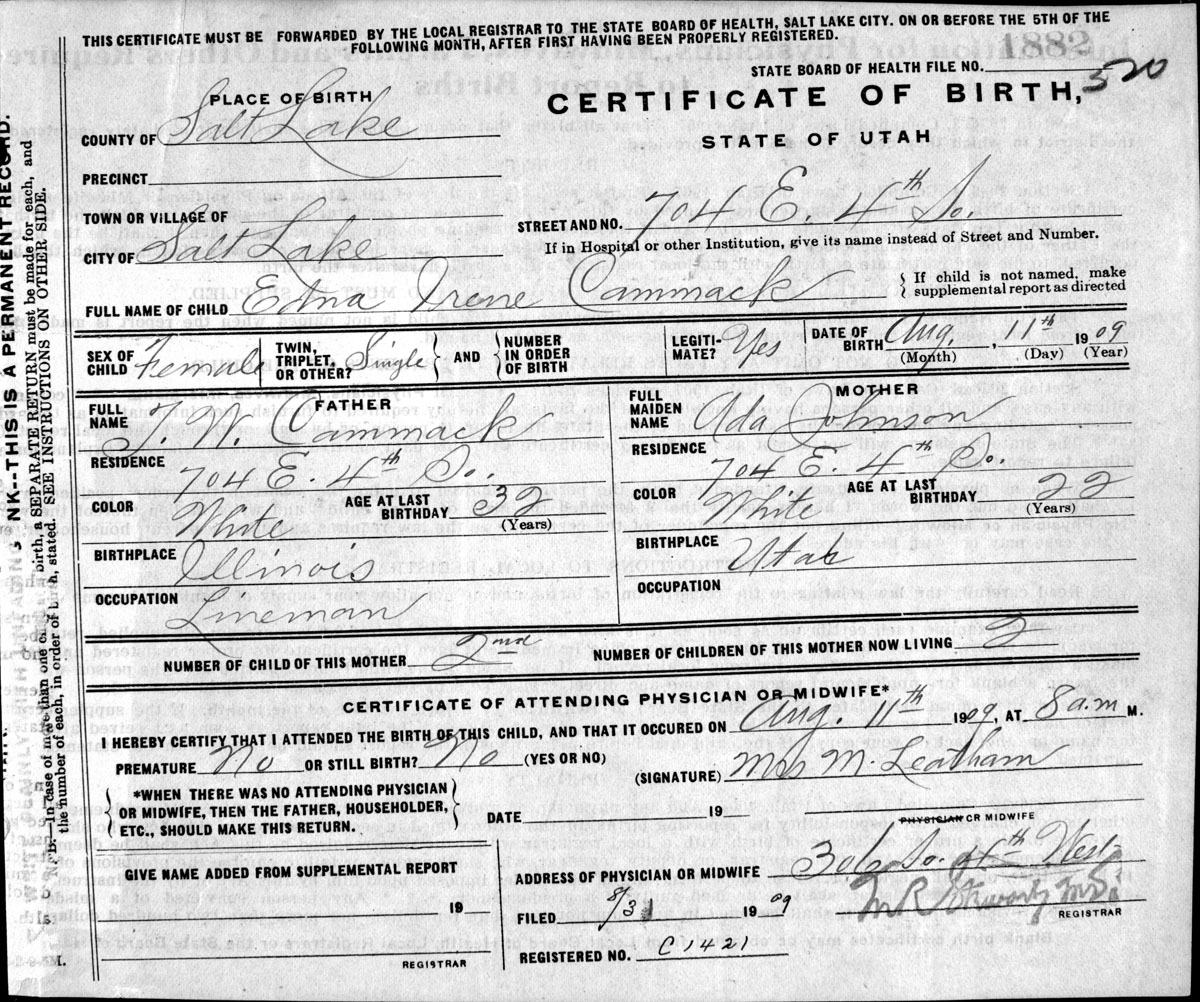 THIS CERTIFICATE MUST BE FORWARDED BY THE LOCAL REGISTRAR TO THE STATE BOARD OF HEALTH, SALT LAKE CITY. ON OR BEFORE THE 5TH OF THE
FOLLOWING MONTH, AFTER FIRST HAVING BEEN PROPERLY REGISTERED.
STATE BOARD OF HEALTH FILE NO. 520
PLACE OF BIRTH
CERTIFICATE OF BIRTH,
COUNTY OF Salt Lake
STATE OF UTAH
PRECINCT
TOWN OR VILLAGE OF
STREET AND NO. 704 E. 4th So.
CITY OF Salt Lake
If in Hospital or other Institution, give its name instead of Street and Number.
FULL NAME OF CHILD Edna Irene Cammack
If child is not named, make
supplemental report as directed
SEX OF CHILD Female
TWIN, TRIPLET, OR OTHER? Single AND NUMBER IN ORDER OF BIRTH
LEGITI-MATE? Yes
DATE OF BIRTH Aug, 11th 1909
(Month) (Day) (Year)
FATHER
FULL NAME Cammack
RESIDENCE 704 E. 4th So.
COLOR White AGE AT LAST BIRTHDAY 32
(Years)
BIRTHPLACE Illinois
OCCUPATION Lineman
MOTHER
FULL MAIDEN NAME Ada Johnson
RESIDENCE 704 E. 4th So.
COLOR White AGE AT LAST BIRTHDAY 22
(Years)
BIRTHPLACE Utah
OCCUPATION
NUMBER OF CHILD OF THIS MOTHER 2nd NUMBER OF CHILDREN OF THIS MOTHER NOW LIVING 2
CERTIFICATE OF ATTENDING PHYSICIAN OR MIDWIFE*
I HEREBY CERTIFY THAT I ATTENDED THE BIRTH OF THIS CHILD, AND THAT IT OCCURED ON Aug. 11th 1909, AT 8 a.m M.
PREMATURE No OR STILL BIRTH? No (YES OR NO)
(SIGNATURE) Mrs M. Leatham
PHYSICIAN OR MIDWIFE
*WHEN THERE WAS NO ATTENDING PHYSICIAN
OR MIDWIFE, THEN THE FATHER, HOUSEHOLDER,
ETC., SHOULD MAKE THIS RETURN.
DATE 19
GIVE NAME ADDED FROM SUPPLEMENTAL REPORT
19
REGISTRAR
ADDRESS OF PHYSICIAN OR MIDWIFE So. West
FILED 8/31 1909
REGISTRAR
REGISTERED NO. C1421
THIS IS A PERMANENT RECORD.
N. B.--In case of more than one child at a birth, a SEPARATE RETURN must be made for each, and
the number of each, in order of birth, stated. SEE INSTRUCTIONS ON OTHER SIDE.